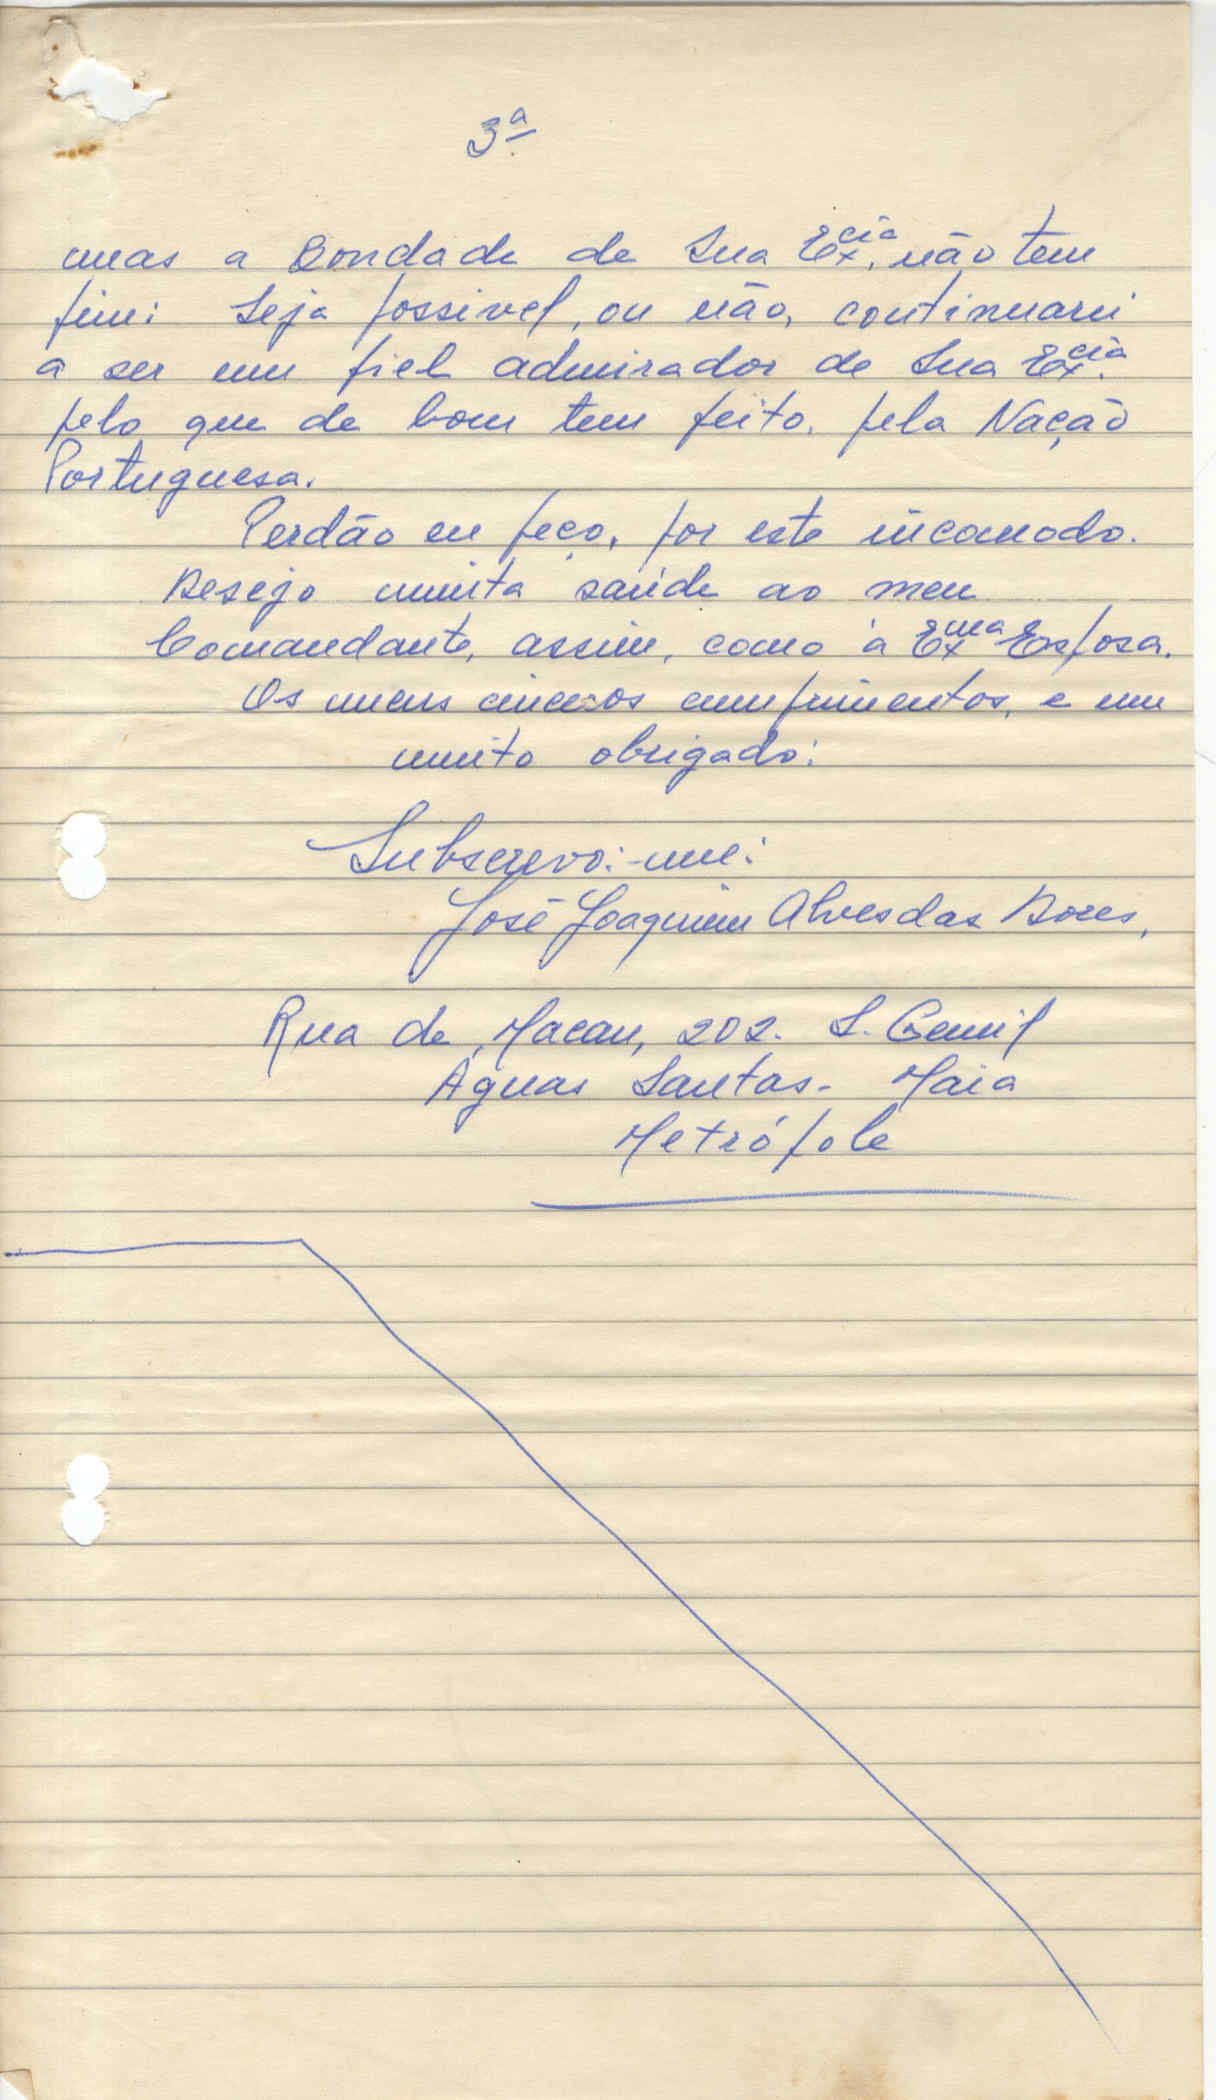 3ª
mas a Bondade de Sua Excia. não tem
fim: Seja possivel, ou não, continuarei
a ser um fiel admirador de Sua Excia.
pelo que de bom tem feito, pela Nação
Portuguesa.
Perdão eu peço, por este incomodo.
Desejo muita saúde ao meu
Comandante, assim, como à Exma Esposa.
Os meus cinceros cumprimentos, e um
muito obrigado:
Subscrevo:-me:
José Joaquim Alves das Dores,
Rua de, Macau, 202. S. Gemil
Águas Santas - Maia
Metrópole